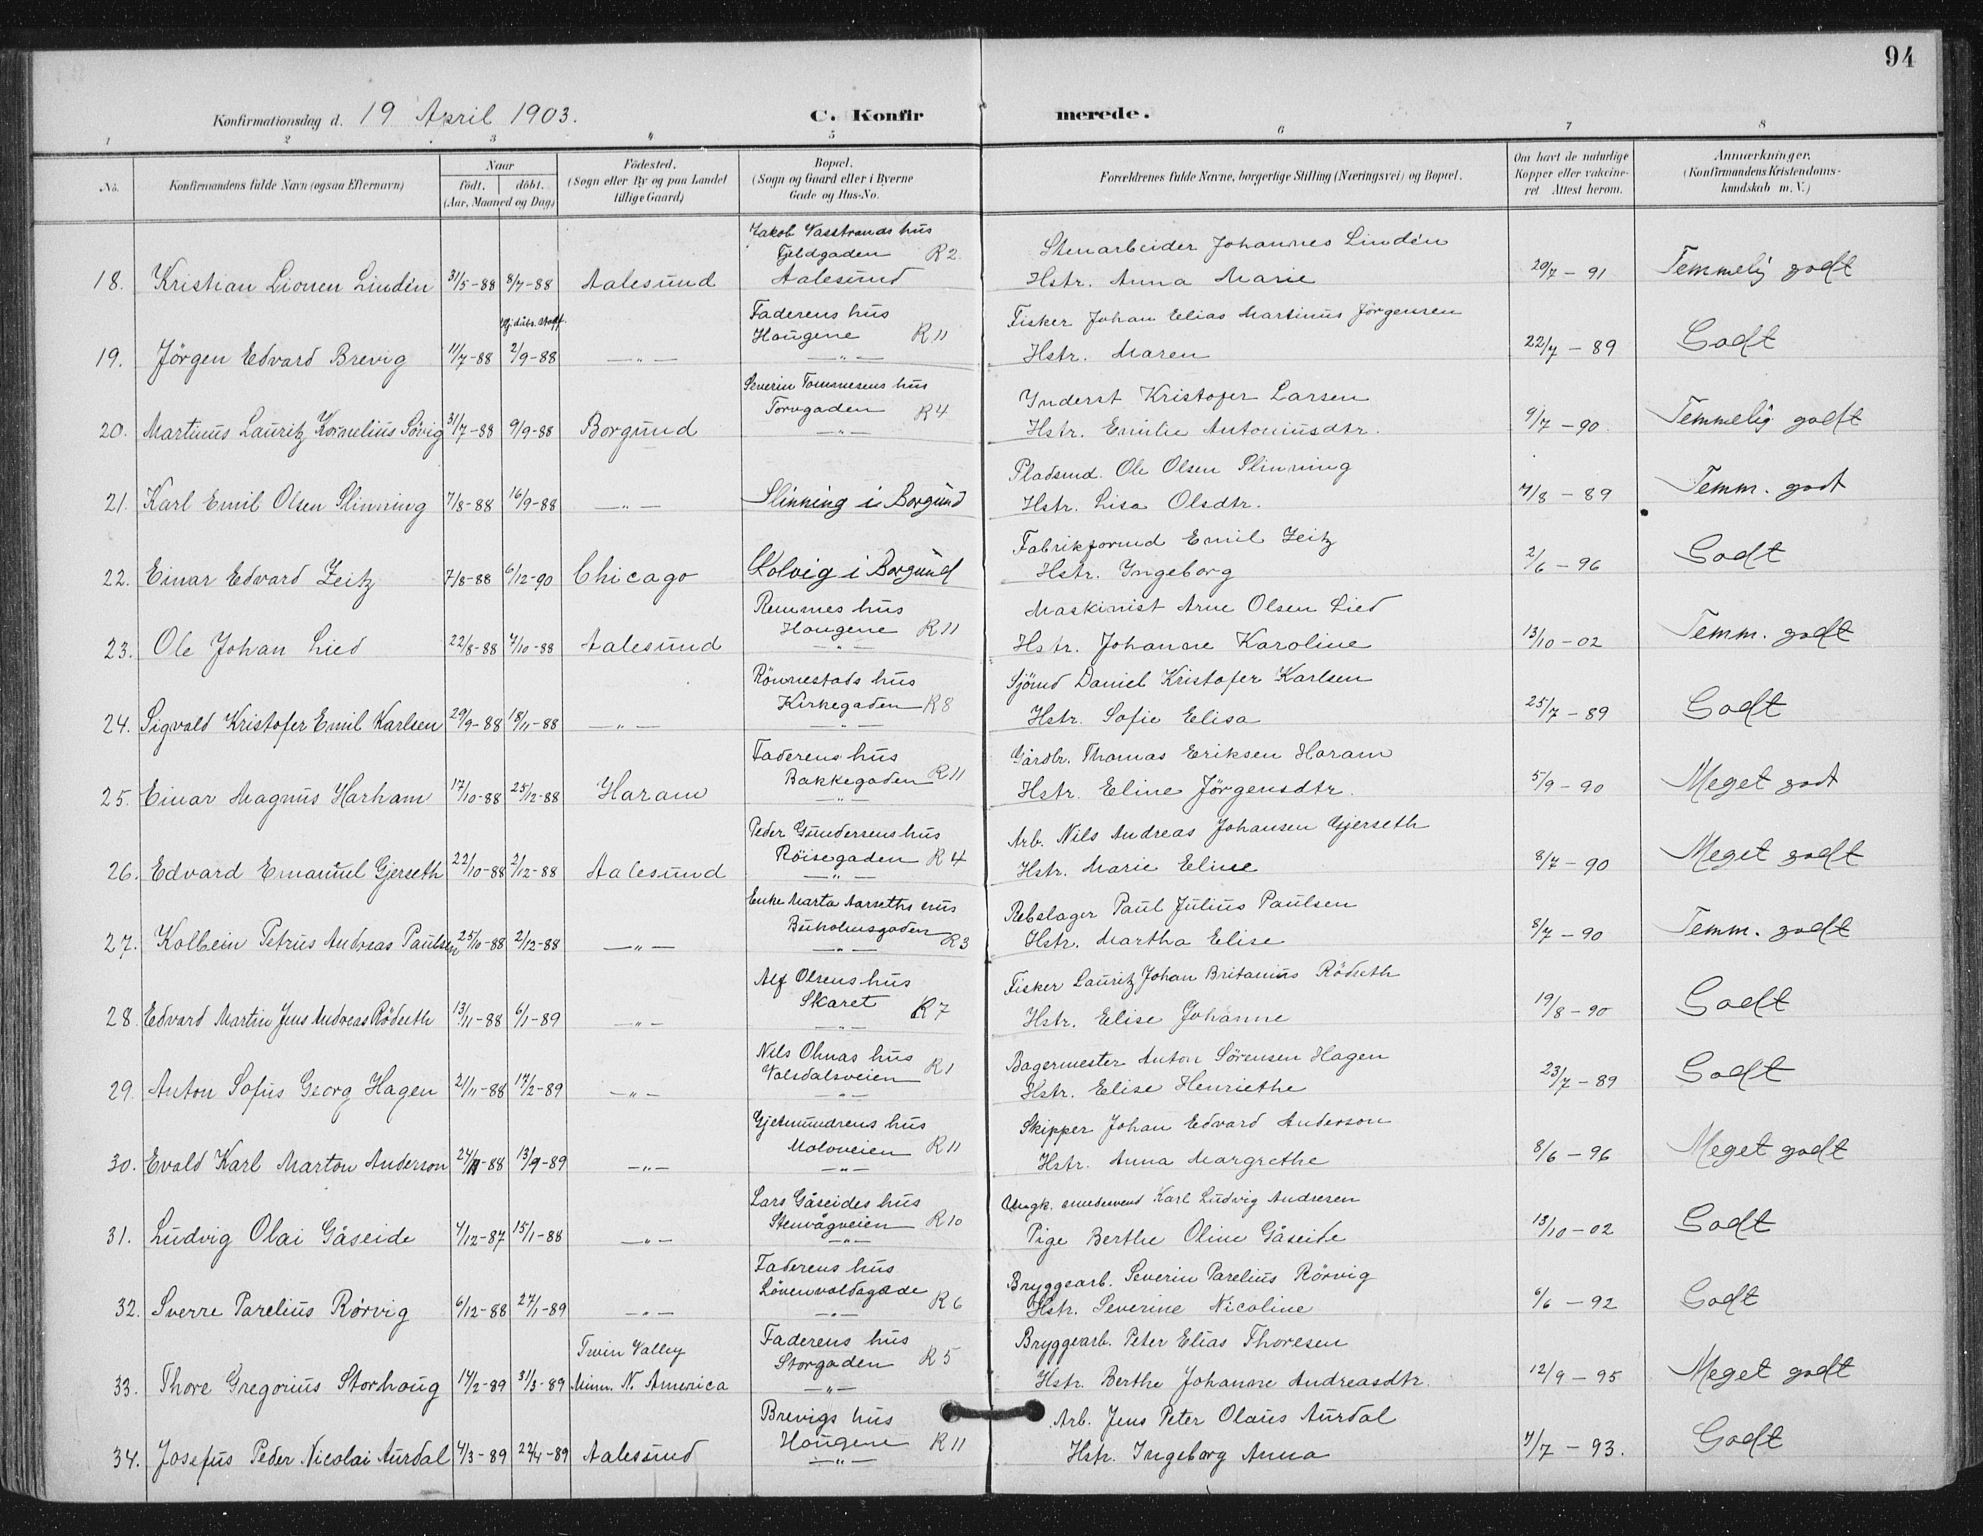 94
Konfirmationsdag d. 19 April 1903.
C. Konfirmerede.
1 2 3 4 5 6 7 8
No.
Konfirmandens fulde Navn (ogsaa Efternavn)
Naar
födt. döbt.
(Aar, Maaned og Dag)
Födested.
(Sogn eller By og paa Landet
tillige Gaard)
Bopæl.
(Sogn og Gaard eller i Byerne
Gade og Hus-No.
Forældrenes fulde Navne, borgerlige Stilling (Næringsvei) og Bopæl.
Om havt de naturlige
Kopper eller vakcine-
ret Attest herom.
Anmærkninger.
(Konfirmandens Kristendoms-
kundskab m. V.)
Jakob Vasstrands hus
Fjeldgaden R 2 Stenarbeider Johannes Lindén
18. Kristian Lionen Lindén 31/5-88 8/7-88 Aalesund Aalesund Hstr. Anna Marie 20/7 - 91 Temmelig godt
Faderens hus Fisker Johan Elias Martinus Jörgensen
Hougene R 11
19. Jörgen Edvard Brevig 11/7-88 2/9-88 — " — — " — Hstr. Maren 22/7 - 89 Godt
Severin Tommesens hus
Torvgaden R 4 Inderst Kristofer Larsen
20. Martinus Lauritz Kornelius Sövig 31/7-88 9/9-88 Borgund — " — Hstr. Emilie Antoniusdtr. 9/7 - 90 Temmelig godt
Pladsmd. Ole Olsen Slinning
21. Karl Emil Olsen Slinning 7/8-88 16/9-88 — " — Slinning i Borgund Hstr. Lisa Olsdtr. 7/8 - 89 Temm. godt
Fabrikformd Emil Zeitz
22. Einar Edvard Zeitz 7/8-88 6/12-90 Chicago Kolvig i Borgund Hstr. Ingeborg 2/6 - 96 Godt
Remmes hus Maskinist Arne Olsen Lied
Hougene R 11
23. Ole Johan Lied 22/8-88 7/10-88 Aalesund — " — Hstr. Johanne Karoline 13/10 - 02 Temm. godt
Rönnestads hus Sjömd Daniel Kristofer Karlsen
Kirkegaden R 8
24. Sigvald Kristofer Emil Karlsen 29/9-88 18/11-88 — " — — " — Hstr. Sofie Elisa 25/7 - 89 Godt
Faderens hus Gårdbr. Thomas Eriksen Haram
Bakkegaden R 11
25. Einar Magnus Harham 17/10-88 25/12-88 Haram — " — Hstr. Eline Jörgensdtr. 5/9 - 90 Meget godt
Peder Gundersens hus Arb. Nils Andreas Johansen Gjerseth
Röisegaden R 4
26. Edvard Emanuel Gjerseth 22/10-88 2/12-88 Aalesund — " — Hstr. Marie Eline 8/7 - 90 Meget godt
Enke Marta Aarseths hus Rebslager Paul Julius Paulsen
Buholmsgaden R 3
27. Kolbein Petrus Andreas Paulsen 25/10-88 2/12-88 — " — — " — Hstr. Martha Elise 8/7 - 90 Temm. godt
Alf Olsens hus Fisker Lauritz Johan Britanius Rödseth
Skaret R 7
28. Edvard Martin Jens Andreas Rödseth 13/11-88 6/1-89 — " — — " — Hstr. Elise Johanne 19/8 - 90 Godt
Nils Ohnas hus R 1 Bagermester Anton Sörensen Hagen
Volsdalsveien
29. Anton Sofus Georg Hagen 21/11-88 17/2-89 — " — — " — Hstr. Elise Henriethe 23/7 - 89 Godt
Gjetmundsens hus Skipper Johan Edvard Anderson
Moloveien R 11
30. Evald Karl Marton Anderson 24/11-88 13/9-89 — " — — " — Hstr. Anna Margrethe 8/6 - 96 Meget godt
Lars Gåseides hus Ungk. smedsvend Karl Ludvig Andresen
Stenvågveien R 10
31. Ludvig Olai Gåseide 4/12-87 15/1-88 — " — — " — Pige Berthe Oline Gåseide 13/10 - 02 Godt
Faderens hus Bryggearb. Severin Parelius Rörvig
Lövenvoldsgade R 6
32. Sverre Parelius Rörvig 6/12-88 27/1-89 — " — — " — Hstr. Severine Nicoline 6/6 - 92 Godt
Twin Valley Faderens hus Bryggearb. Peter Elias Thoresen
Storgaden R 5
33. Thore Gregorius Storhoug 14/2-89 31/3-89 Minn. N. America — " — Hstr. Berthe Johanne Andreasdtr. 12/9 - 95 Meget godt
Brevigs hus Arb. Jens Peter Olaus Aurdal
Hougene R 11
34. Josefus Peder Nicolai Aurdal 4/3-89 22/4-89 Aalesund — " — Hstr. Ingeborg Anna 7/7 - 93. Godt